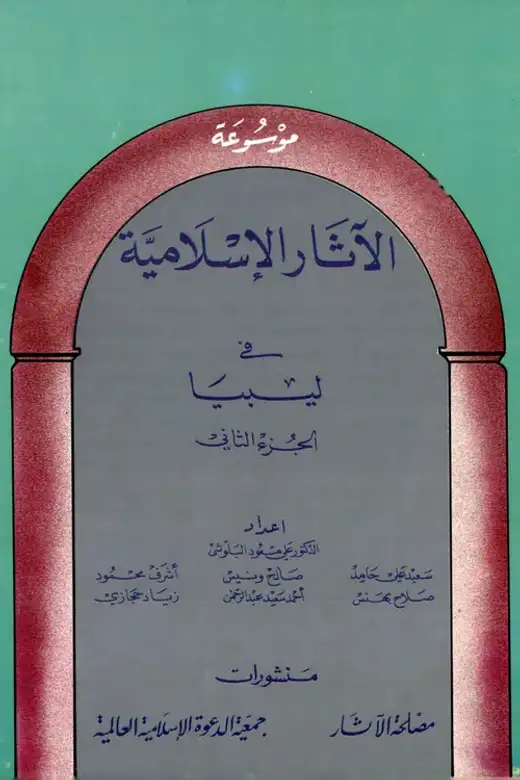 موْسُوعَة
الآثَار الإِسْلَاميَّة
في
ليبيَا
الجُزء الثاني
اعداد
الدكتور علي مسعود البلوشي
سَعيد علي حَامِد صَالح ونيس أشرف محمود
صَلاح بهنس أحمد سَعيد عبدالرحمن زياد حجازي
مَنشورات
مصلحة الآثار جمعيّة الدعوة الإسلاميّة العالمية